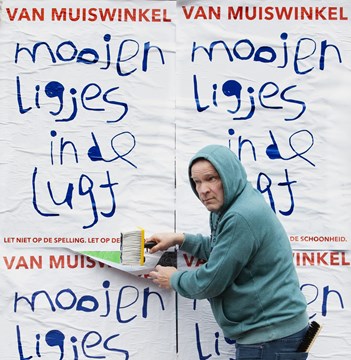 VAN MUISWINKEL
moojen
ligjes
in de
lugt
LET NIET OP DE SPELLING. LET OP DE
VAN MUISWINKEL
moojen
ligjes
in de
lugt
DE SCHOONHEID.
VAN MUISWINKEL
moojen
ligjes
INKEL